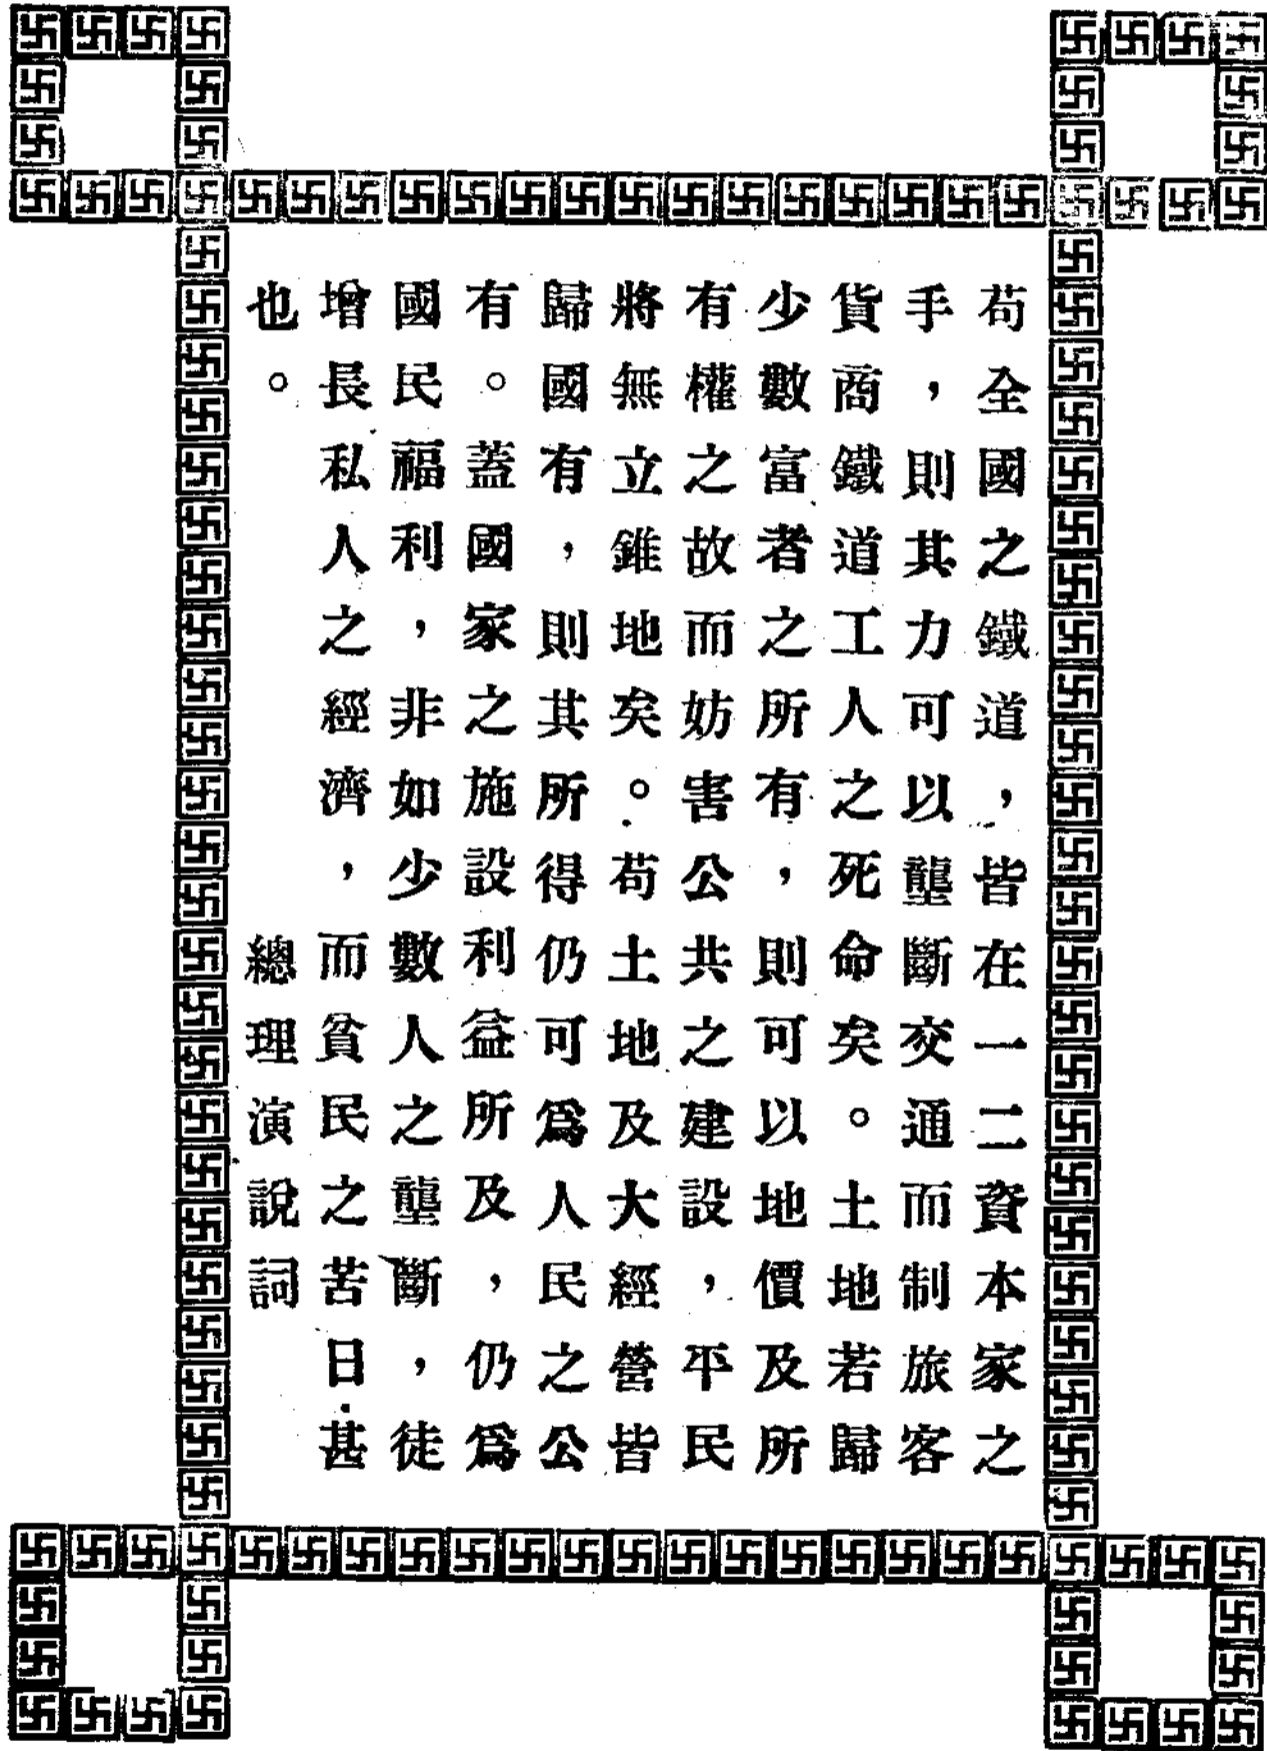 苟全國之鐵道，皆在一二資本家之
手，則其力可以壟斷交通而制旅客
貨商鐵道工人之死命矣。土地若歸
少數富者之所有，則可以地價及所
有權之故而妨害公共之建設，平民
將無立錐地矣。苟土地及大經營皆
歸國有，則其所得仍可爲人民之公
有。蓋國家之施設利益所及，仍爲
國民福利，非如少數人之壟斷，徒
增長私人之經濟，而貧民之苦日甚
也。
總理演說詞